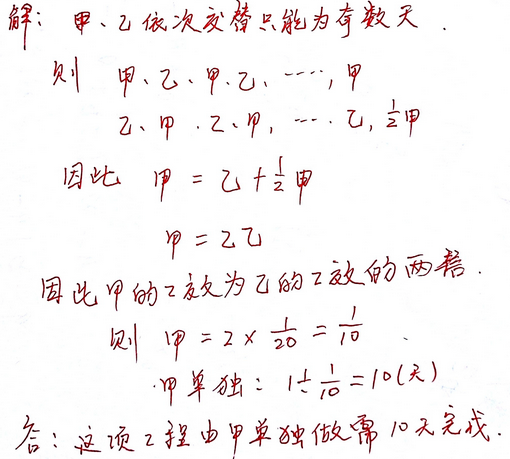 解：甲、乙依次交替只能为奇数天.
则 甲、乙、甲、乙、……，甲
乙、甲、乙、甲，…… 乙，1/2甲
因此 甲 = 乙 + 1/2甲
甲 = 2乙
因此甲的工效为乙的工效的两倍.
则 甲 = 2 × 1/20 = 1/10.
甲单独：1÷1/10=10(天)
答：这项工程由甲单独做需10天完成.